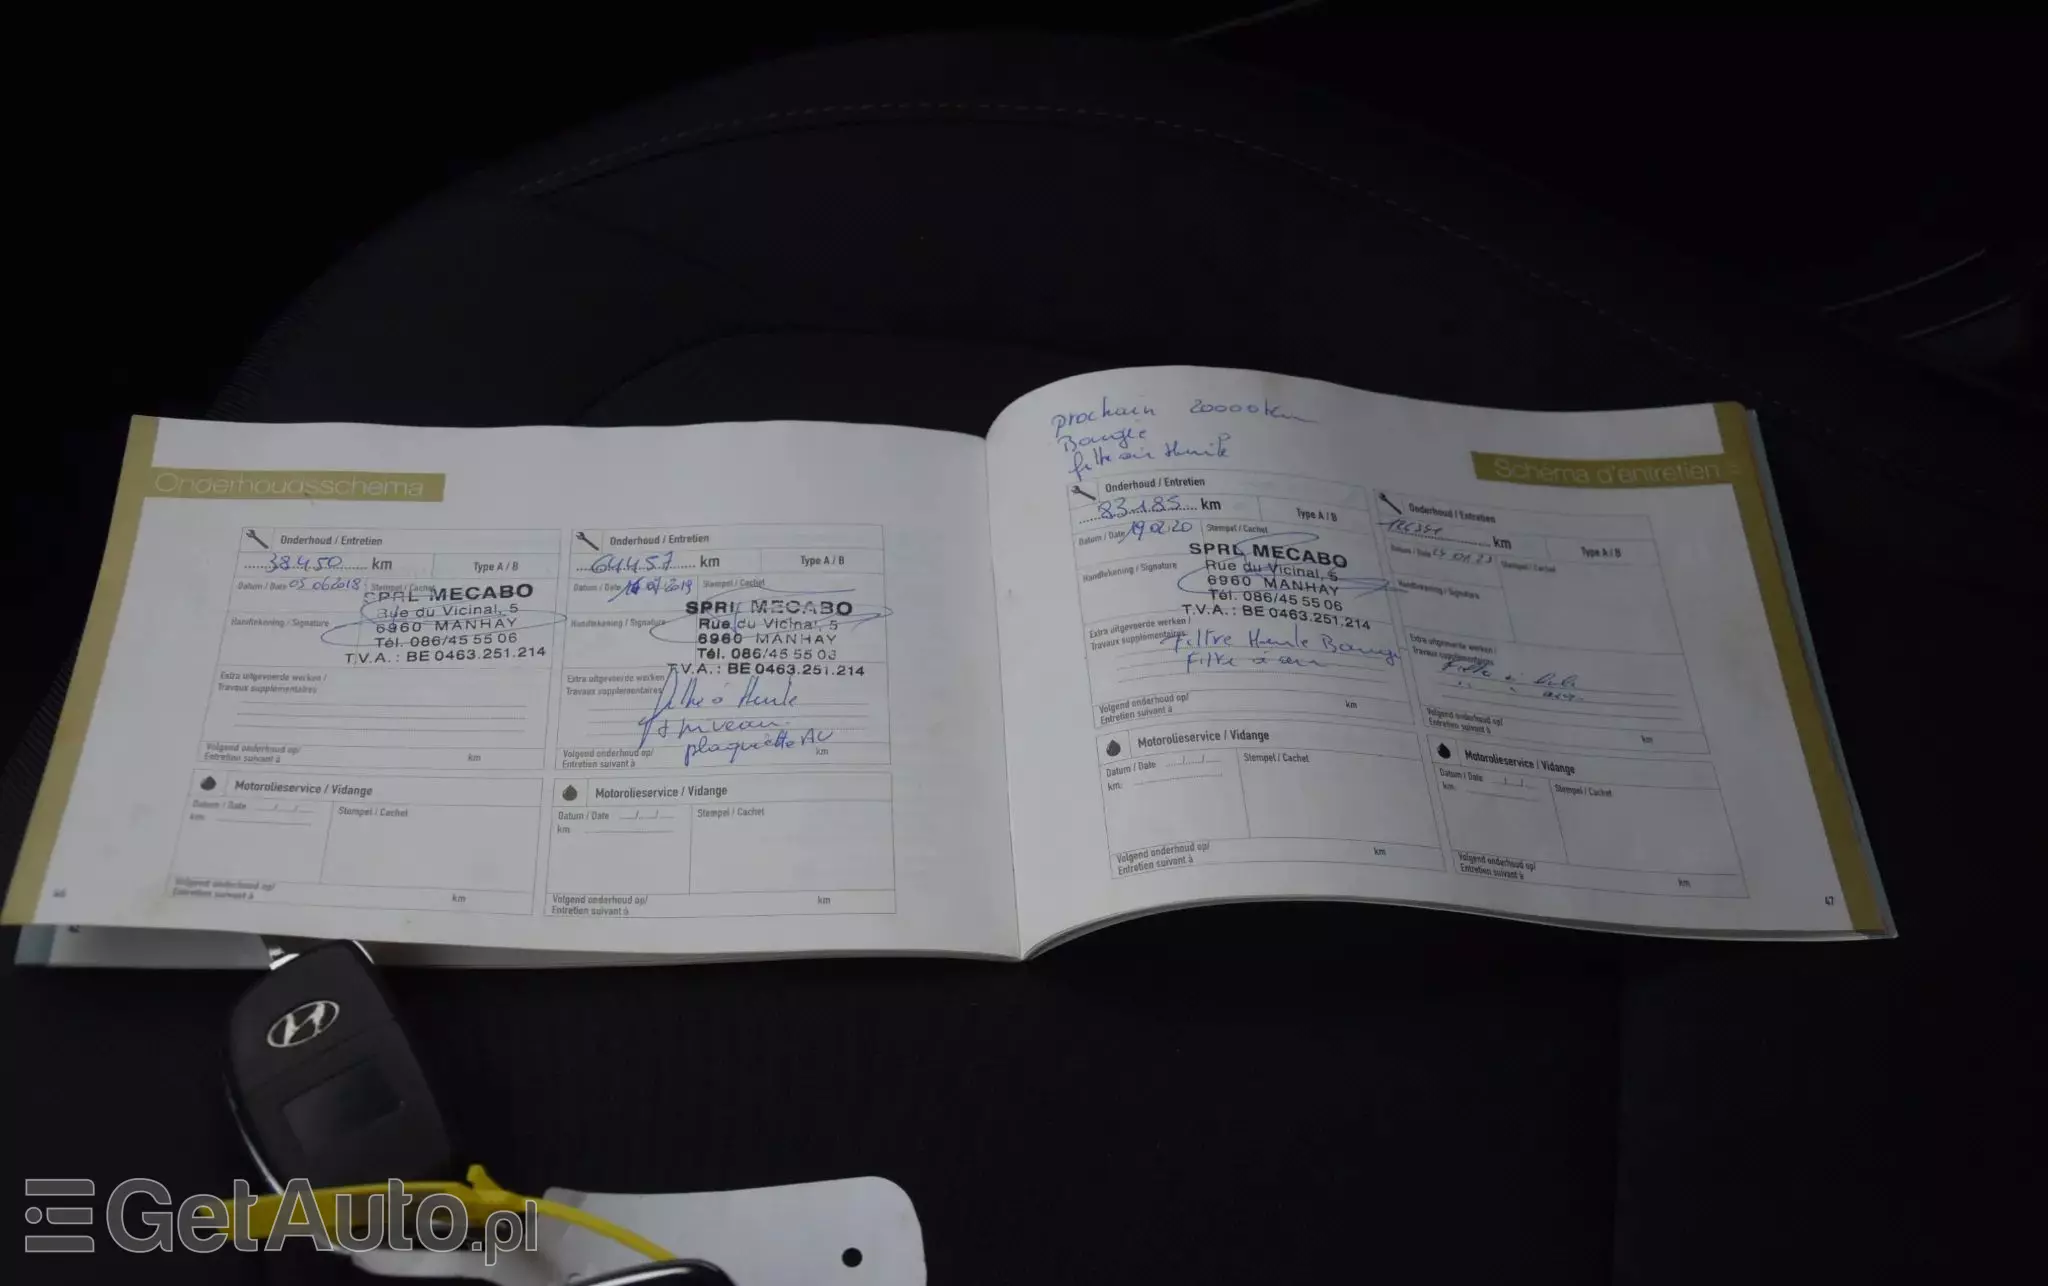 Onderhoudsschema
Onderhoud / Entretien
38450 km
Type A / B
Datum / Date 05 06 2018
Stempel / Cachet
SPRL MECABO
Rue du Vicinal, 5
6960 MANHAY
Tél. 086/45 55 06
T.V.A. : BE 0463.251.214
Handtekening / Signature
Extra uitgevoerde werken /
Travaux supplémentaires
Volgend onderhoud op/
Entretien suivant à
km
Motorolieservice / Vidange
Datum / Date __/__/__
Stempel / Cachet
km
Volgend onderhoud op/
Entretien suivant à
km
Onderhoud / Entretien
64457 km
Type A / B
Datum / Date 07/2019
Stempel / Cachet
SPRL MECABO
Rue du Vicinal, 5
6960 MANHAY
Tél. 086/45 55 06
T.V.A. : BE 0463.251.214
Handtekening / Signature
Extra uitgevoerde werken
Travaux supplémentaires
filtre à Huile
+ niveau
plaquette AV
Volgend onderhoud op/
Entretien suivant à
km
Motorolieservice / Vidange
Datum / Date __/__/__
Stempel / Cachet
km
Volgend onderhoud op/
Entretien suivant à
km
46
prochain 20000km
Bougie
filtre air Huile
Schéma d'entretien
Onderhoud / Entretien
83185 km
Type A / B
Datum / Date 19 02 20
Stempel / Cachet
SPRL MECABO
Rue du Vicinal, 5
6960 MANHAY
Tél. 086/45 55 06
T.V.A. : BE 0463.251.214
Handtekening / Signature
Extra uitgevoerde werken /
Travaux supplémentaires
Filtre Huile Bougie
Filtre à air
Volgend onderhoud op/
Entretien suivant à
km
Motorolieservice / Vidange
Datum / Date __/__/__
Stempel / Cachet
km.
Volgend onderhoud op/
Entretien suivant à
km
Onderhoud / Entretien
km
Type A / B
Datum / Date
Stempel / Cachet
Handtekening / Signature
Extra uitgevoerde werken /
Travaux supplémentaires
Volgend onderhoud op/
Entretien suivant à
km
Motorolieservice / Vidange
Datum / Date __/__/__
Stempel / Cachet
km.
Volgend onderhoud op/
Entretien suivant à
km
47
GetAuto.pl